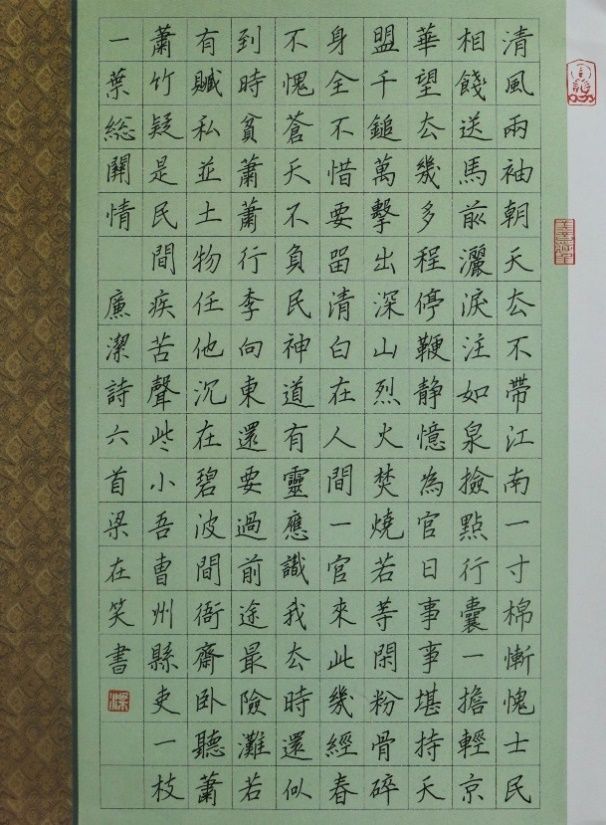 清風兩袖朝天去不帶江南一寸棉慚愧士民
相餞送馬前灑淚注如泉撿點行囊一擔輕京
華望去幾多程停鞭靜憶為官日事事堪持天
盟千鎚萬擊出深山烈火焚燒若等閑粉骨碎
身全不惜要留清白在人間一官來此幾經春
不愧蒼天不負民神道有靈應識我去時還似
到時貧蕭蕭行李向東還要過前途最險灘若
有贓私並土物任他沉在碧波間衙齋卧聽蕭
蕭竹疑是民間疾苦聲些小吾曹州縣吏一枝
一葉総關情 廉潔詩六首梁在笑書